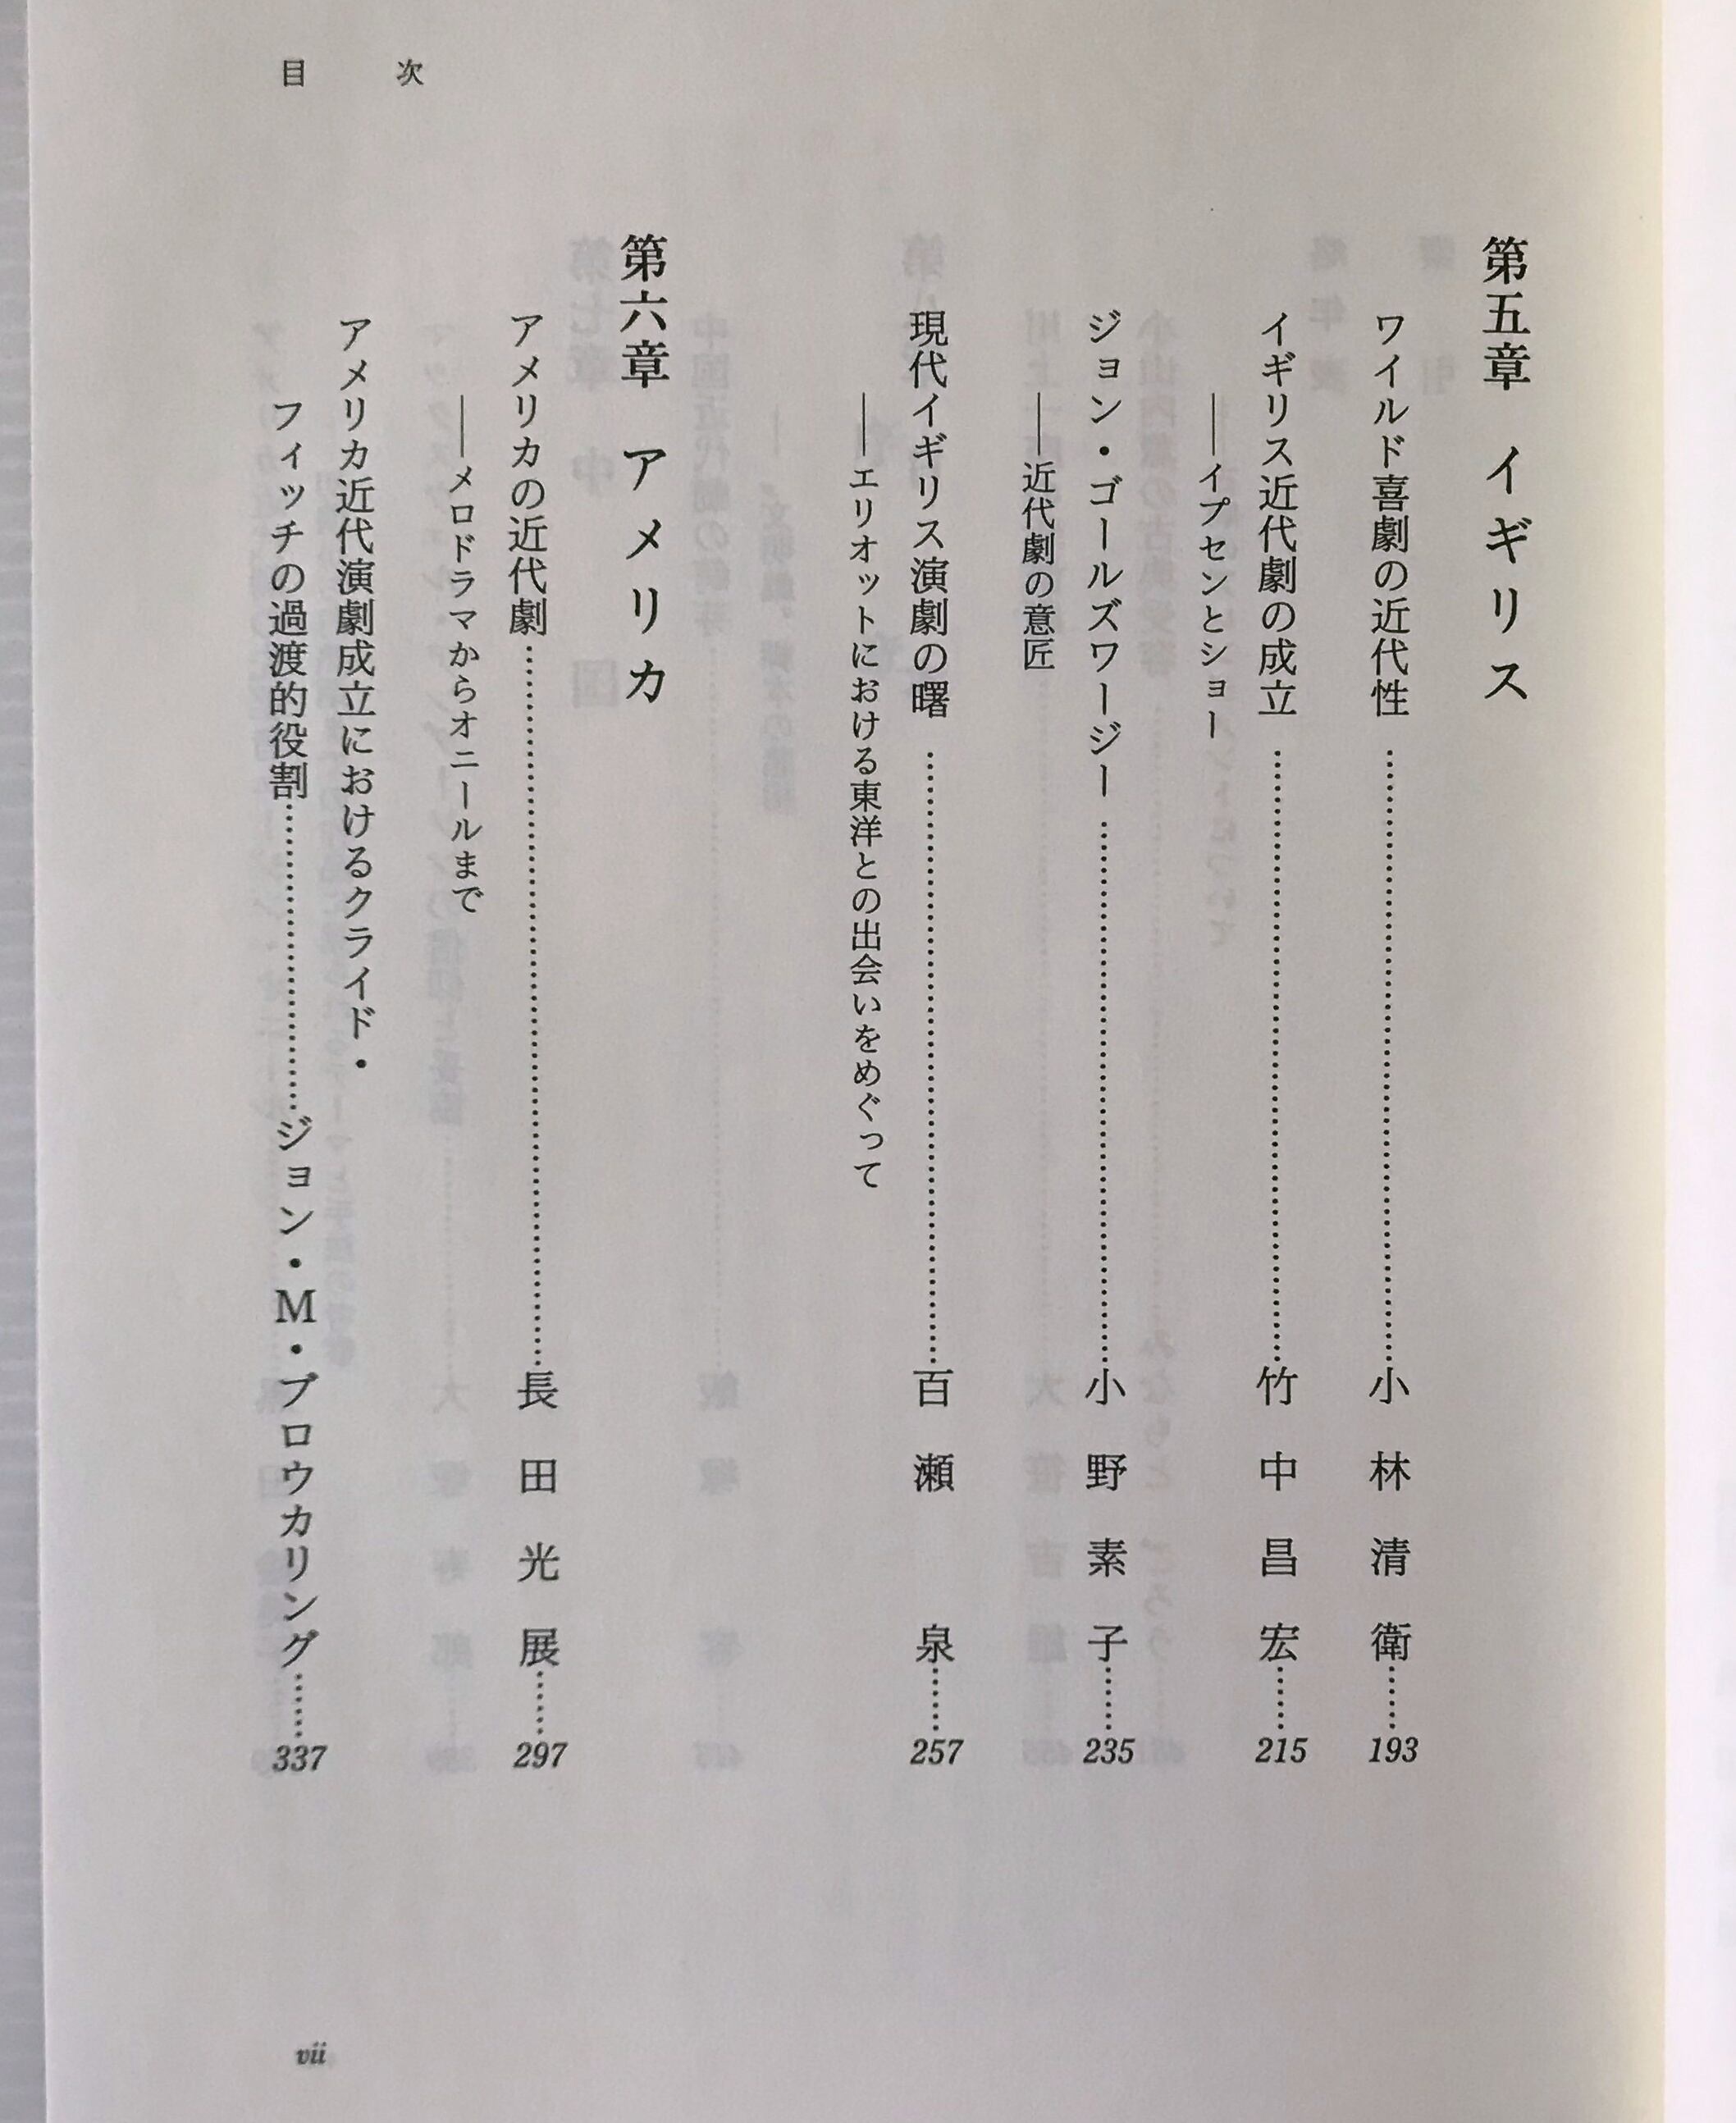 目次
第五章 イギリス
ワイルド喜劇の近代性……小林清衛……193
イギリス近代劇の成立……竹中昌宏……215
――イプセンとショー
ジョン・ゴールズワージー……小野素子……235
――近代劇の意匠
現代イギリス演劇の曙……百瀬泉……257
――エリオットにおける東洋との出会いをめぐって
第六章 アメリカ
アメリカの近代劇……長田光展……297
――メロドラマからオニールまで
アメリカ近代演劇成立におけるクライド・
フィッチの過渡的役割……ジョン・M・ブロウカリング……337
vii